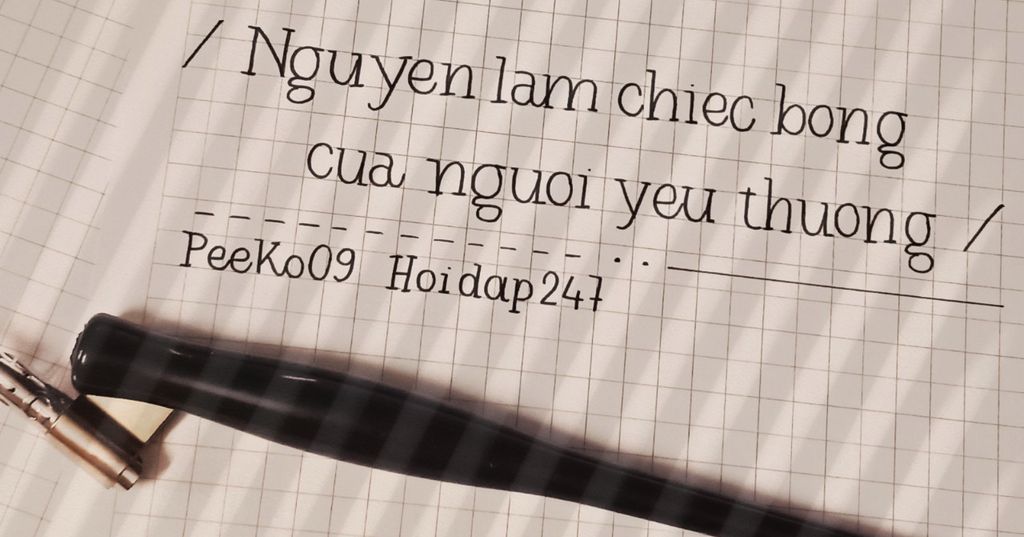 / Nguyen lam chiec bong
cua nguoi yeu thuong /
PeeKo09 Hoidap247